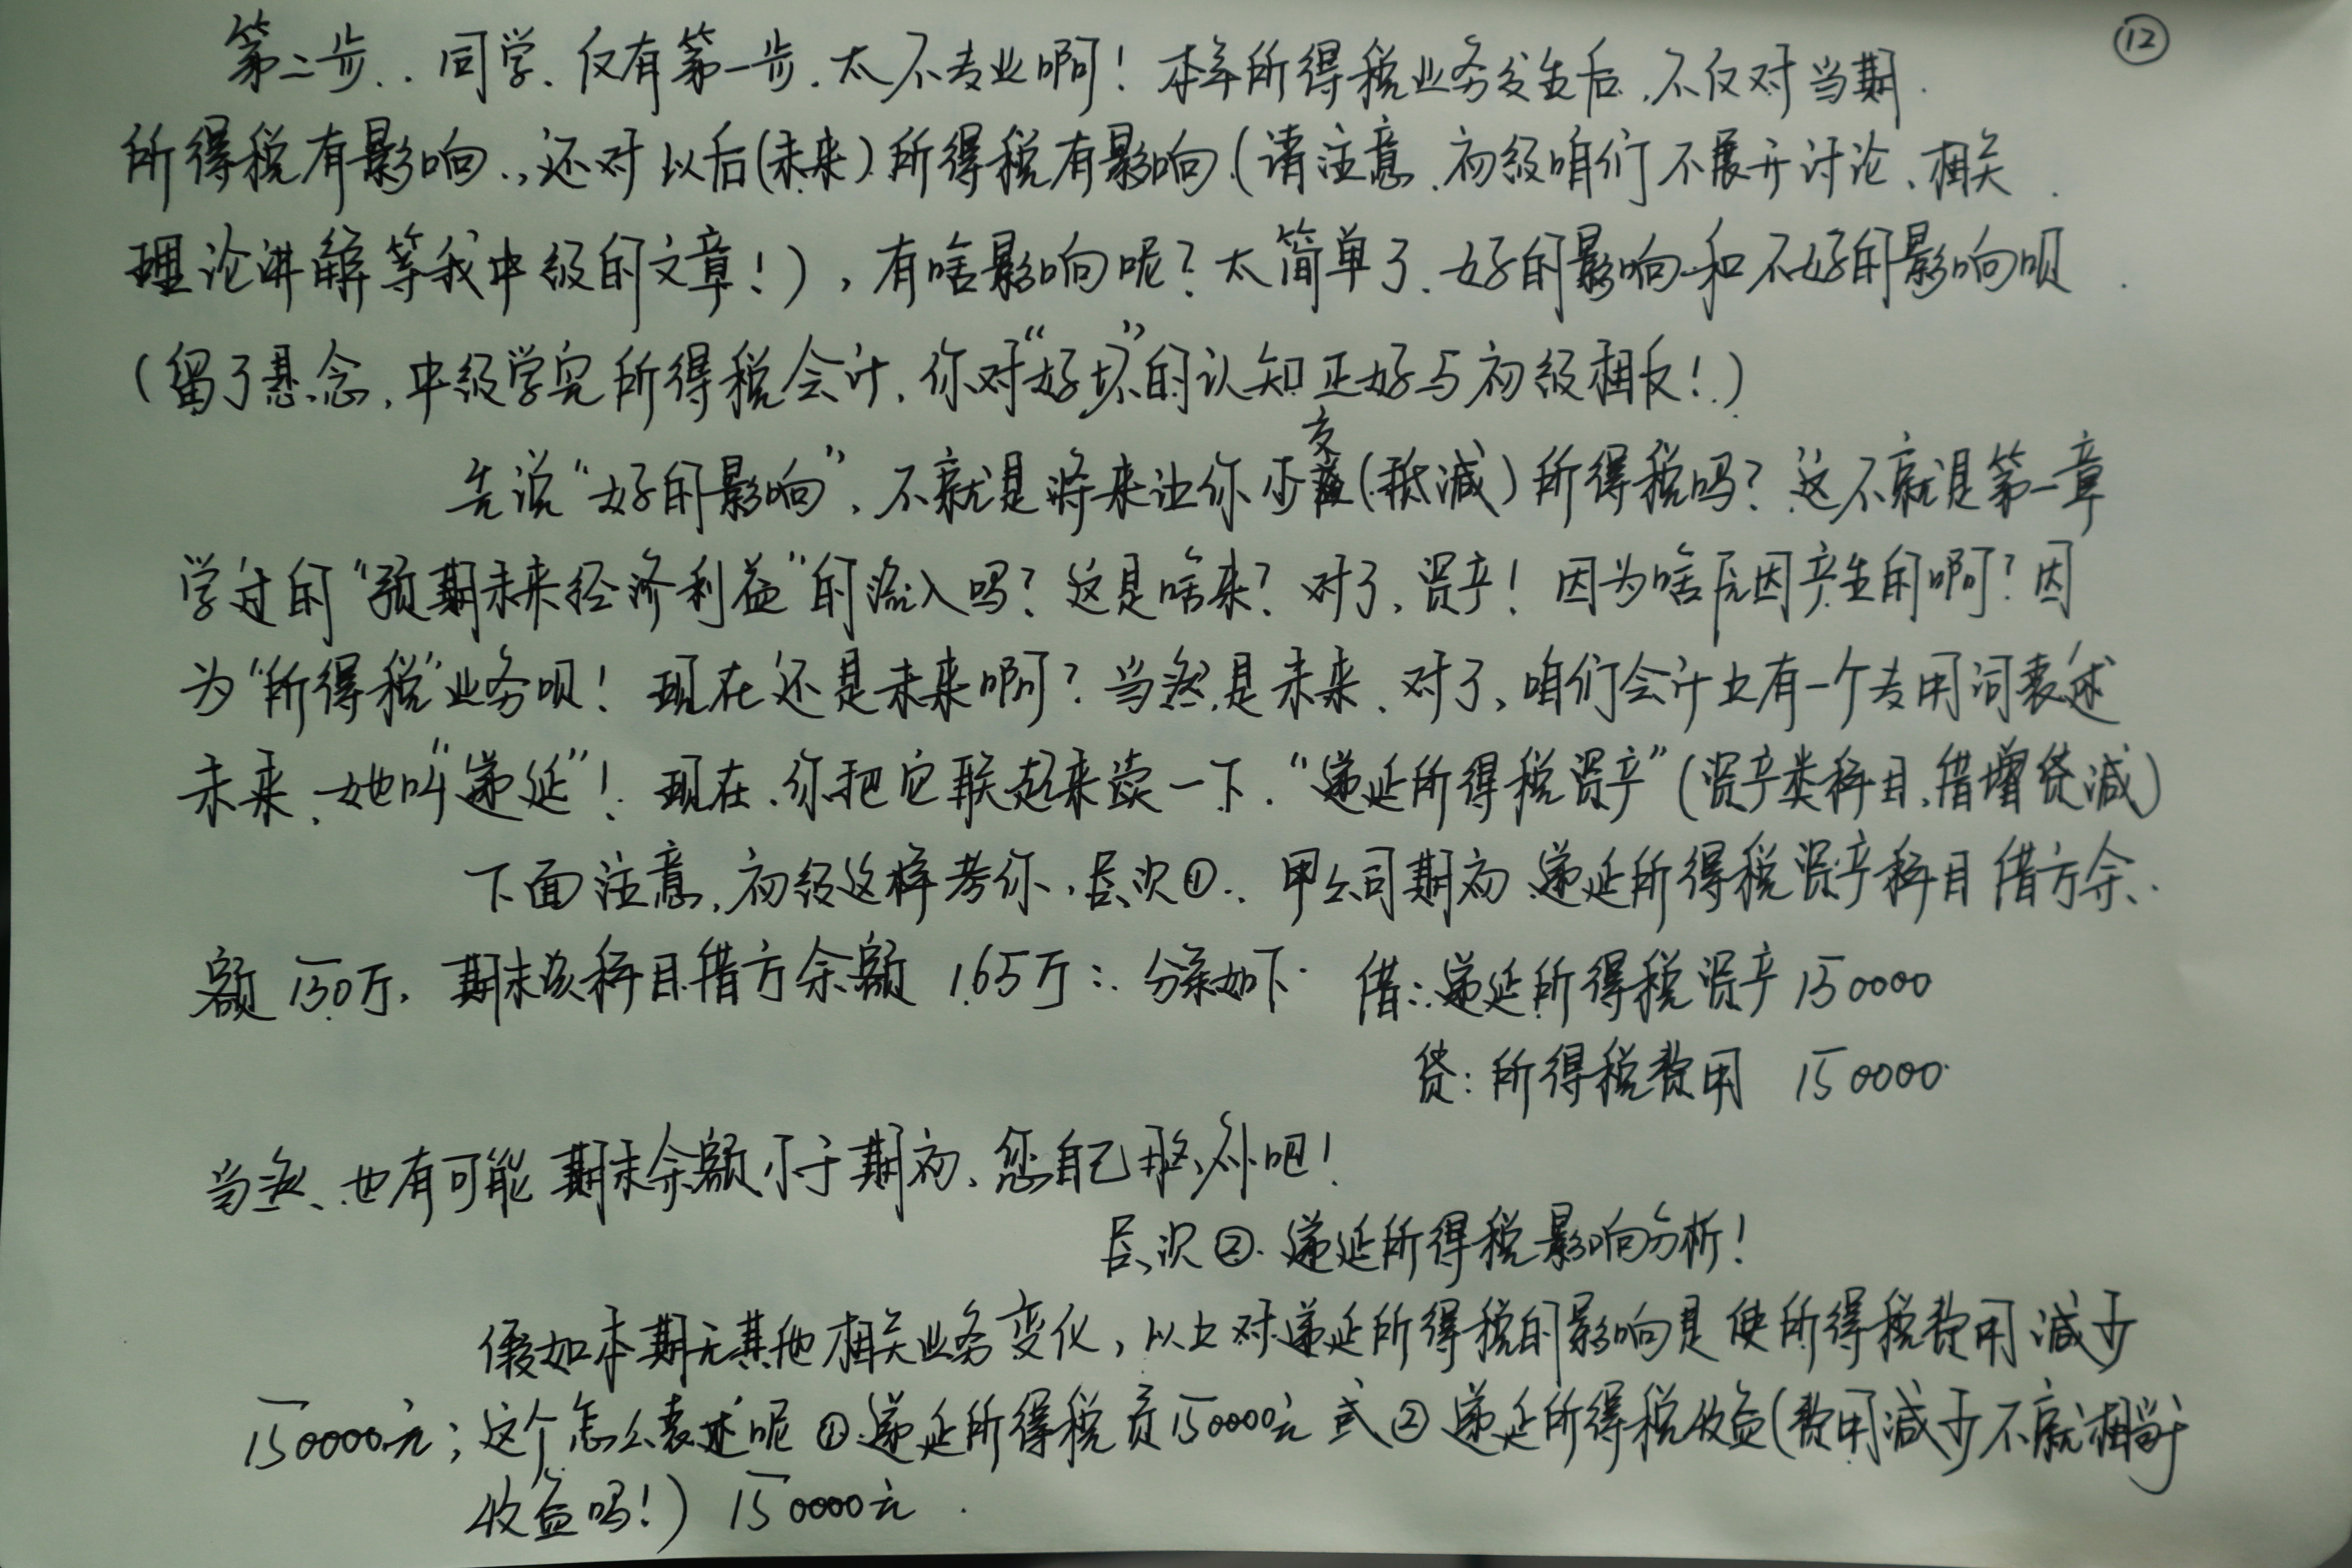 ⑫
第二步..同学、仅有第一步.太不专业啊！本年所得税业务发生后,不仅对当期.
所得税有影响.,还对以后(未来)所得税有影响(请注意、初级咱们不展开讨论、相关.
理论讲解等我中级的文章！),有啥影响呢？太简单了.好的影响和不好的影响呗.
(留了悬念,中级学完所得税会计,你对“好坏”的认知正好与初级相反！.)
先说“好的影响”,不就是将来让你少交(抵减)所得税吗？这不就是第一章
学过的“预期未来经济利益”的流入吗？这是啥来？对了,资产！因为啥原因产生的啊？因
为“所得税”业务呗！现在还是未来啊？当然是未来、对了,咱们会计上有一个专用词表述
未来、她叫“递延”！现在.你把它联起来读一下.“递延所得税资产”(资产类科目,借增贷减)
下面注意,初级这样考你,层次①.甲公司期初递延所得税资产科目借方余、
额150万,期末该科目借方余额165万:.分录如下.借:递延所得税资产150000
贷:所得税费用 150000
当然、也有可能期末余额小于期初、您自己琢.吧！
层次②.递延所得税影响分析！
假如本期无其他相关业务变化,以上对递延所得税的影响是使所得税费用减少
150000元;这个怎么表述呢①递延所得税负150000元或②递延所得税收益(费用减少不就相当于
收益吗！)150000元.